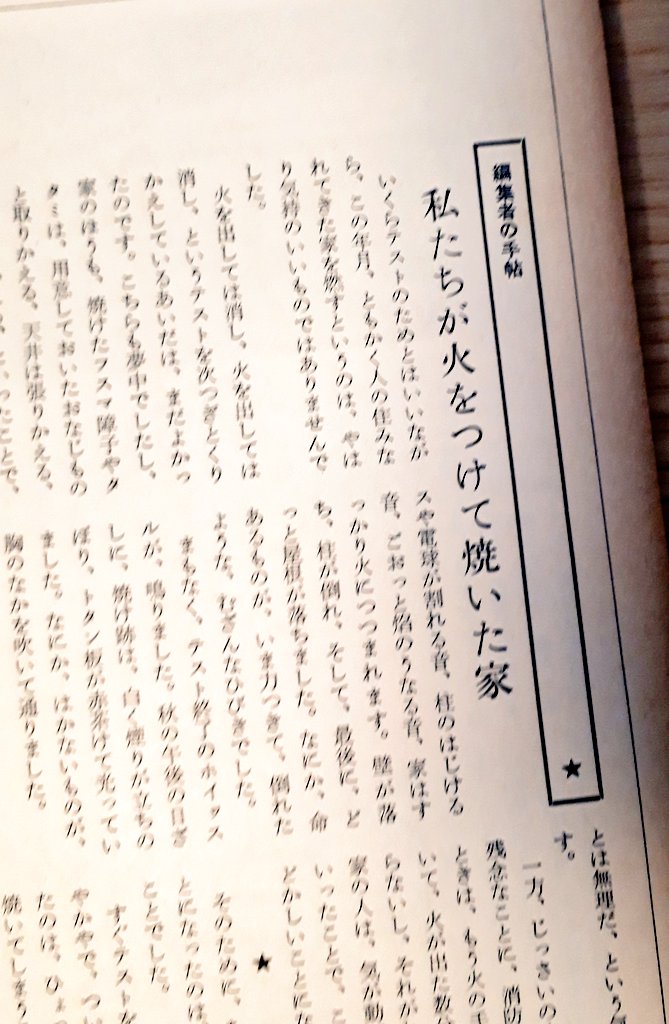 編集者の手帖
★
私たちが火をつけて焼いた家
いくらテストのためとはいいなが
ら、この年月、ともかく人の住みな
れてきた家を燃すというのは、やは
り気持のいいものではありませんで
した。
火を出しては消し、火を出しては
消し、というテストを次つぎとくり
かえしているあいだは、まだよかっ
たのです。こちらも夢中でしたし、
家のほうも、焼けたフスマ障子やタ
タミは、用意しておいたおなじもの
と取りかえる、天井は張りかえる、
といったことで、
スや電球が割れる音、柱のはじける
音、ごおっと焰のうなる音、家はす
っかり火につつまれます。壁が落
ち、柱が倒れ、そして、最後に、ど
っと屋根が落ちました。なにか、命
あるものが、いま力つきて、倒れた
ような、むざんなひびきでした。
まもなく、テスト終了のホイッス
ルが、鳴りました。秋の午後の日ざ
しに、焼け跡は、白く煙りが立ちの
ぼり、トタン板が赤茶けて光ってい
ました。なにか、はかないものが、
胸のなかを吹いて通りました。
とは無理だ、という
す。
一方、じっさいの
残念なことに、消防
ときは、もう火の手
いて、火が出た数
らないし、それが
家の人は、気が動
いったことで、こ
どかしいことにな
★
そのために、
とになったのは、
ことでした。
すぐテストを
やかやで、つい
たのは、ひょっ
焼いてしまう